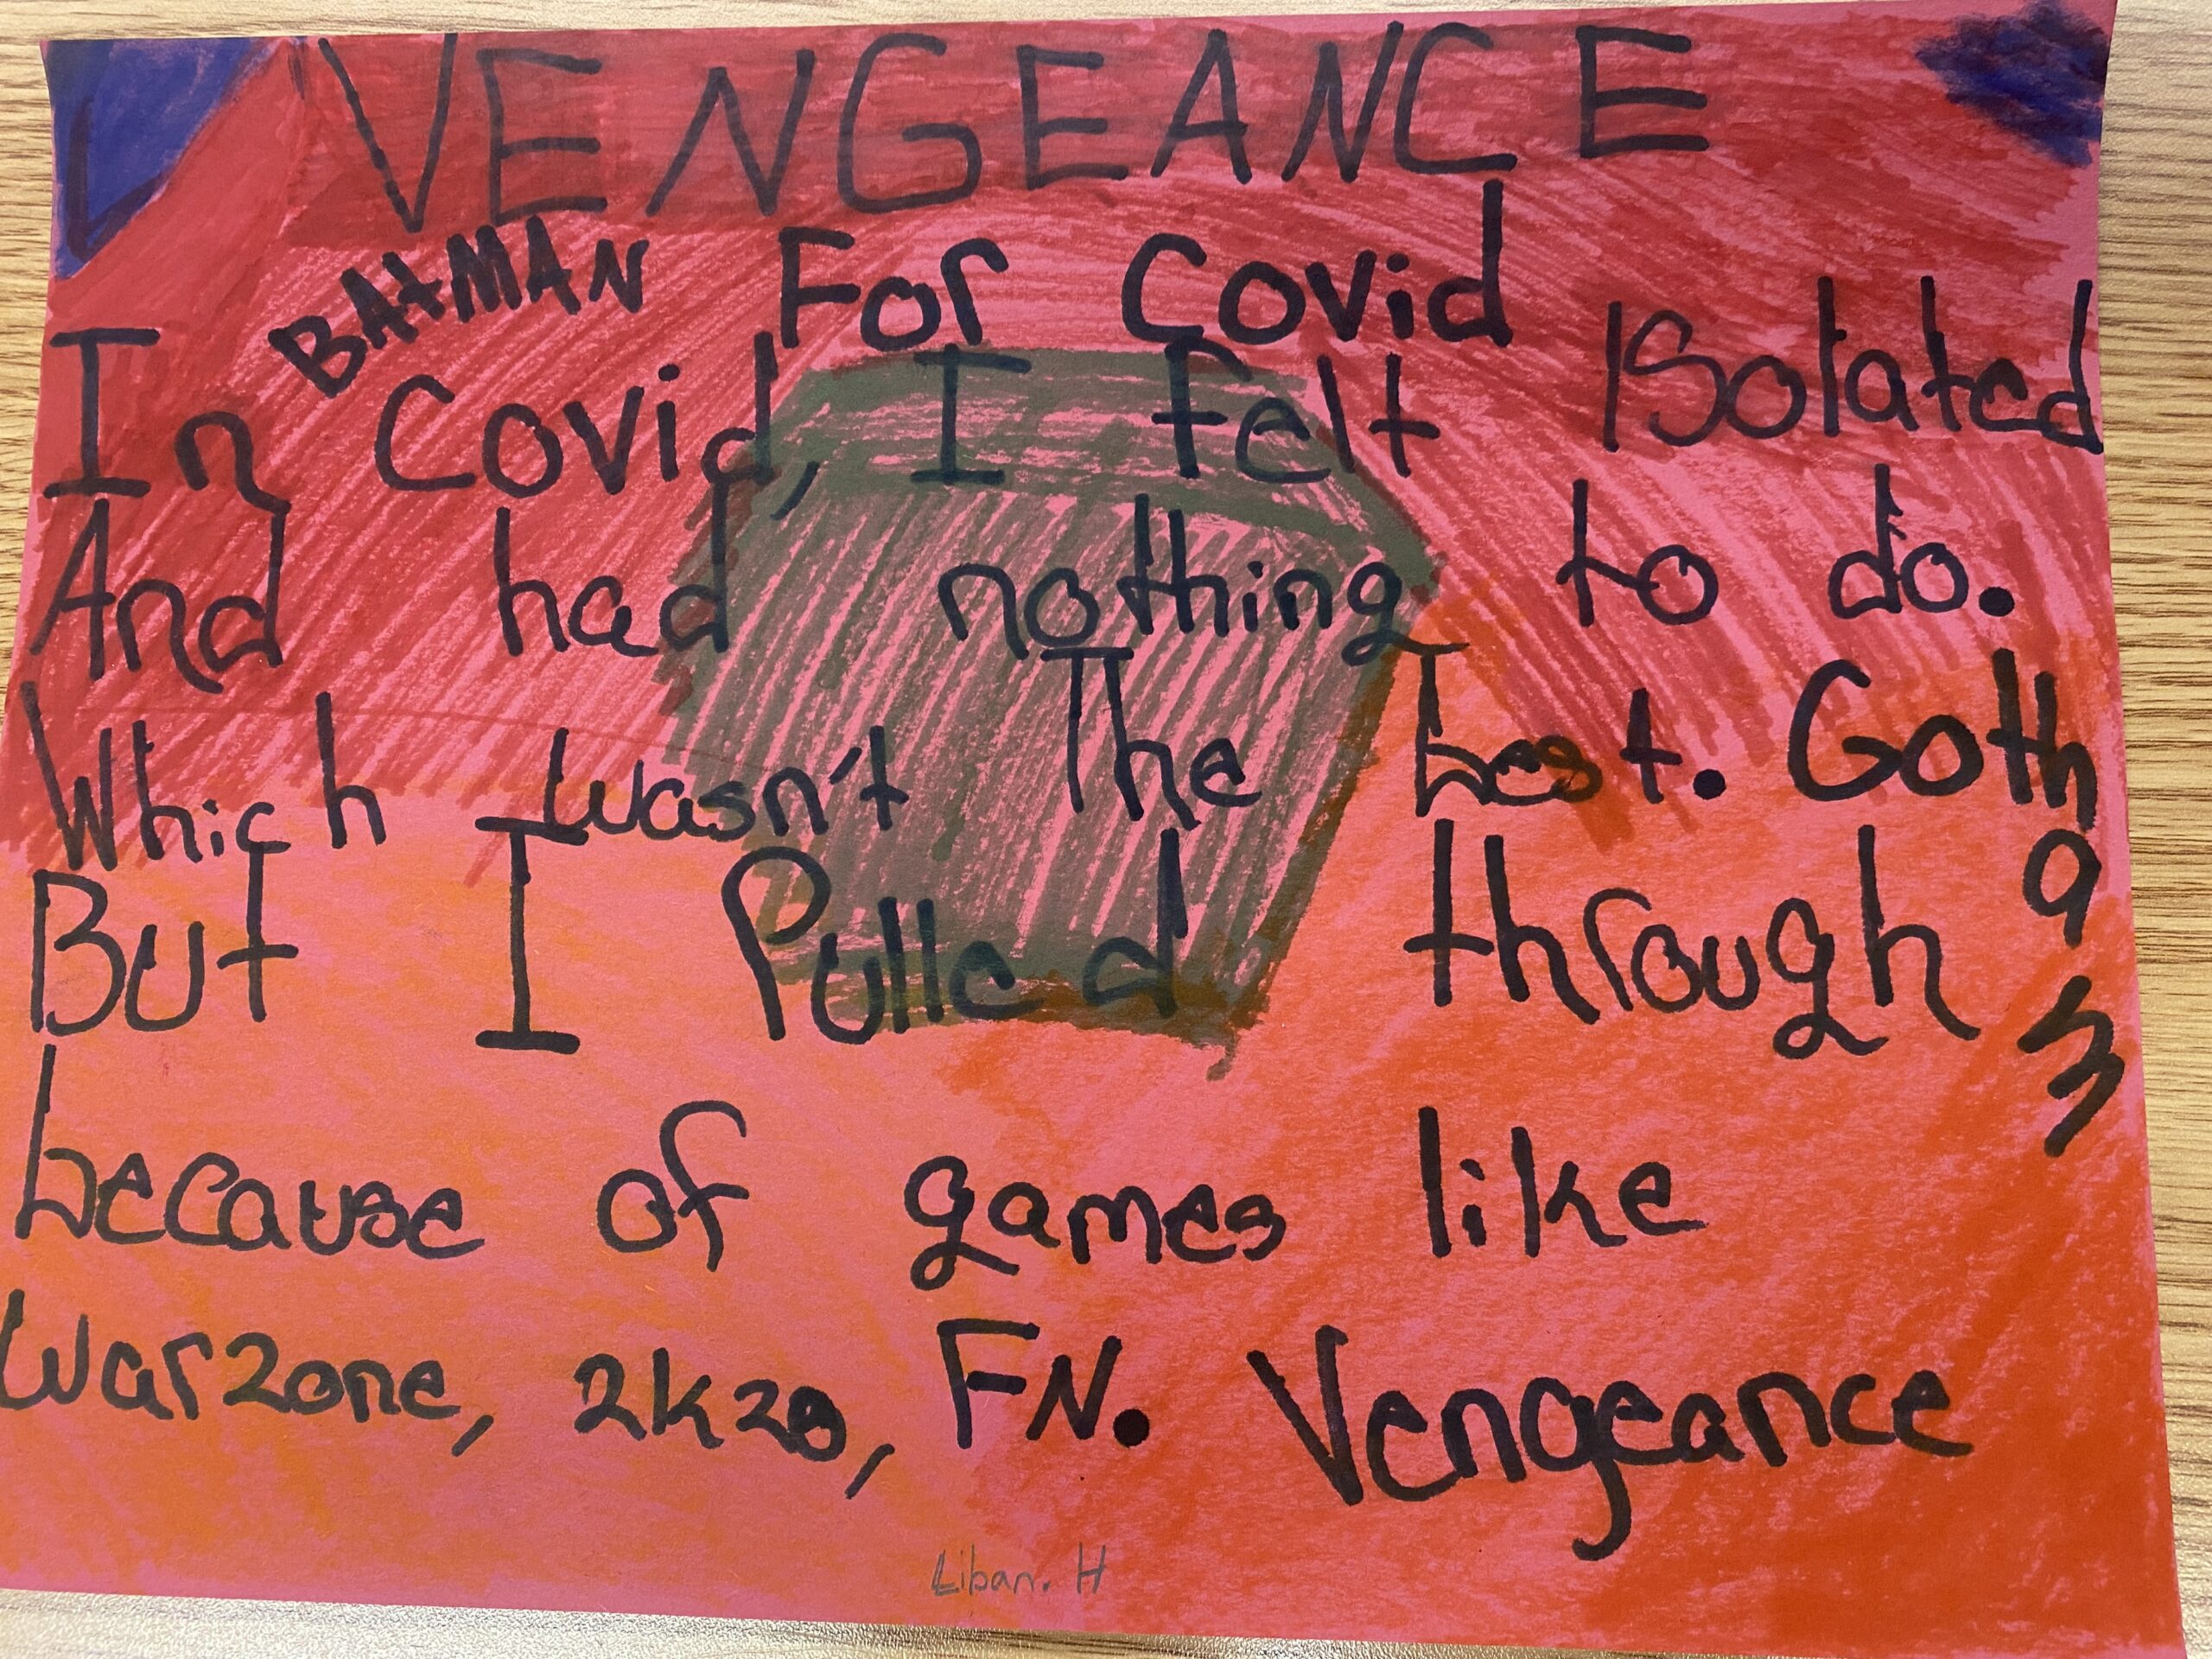 VENGEANCE
BAtMAN For Covid
In Covid, I felt Isolated
And had nothing to do.
Which wasn't The best. Gotham
But I Pulled through
because of games like
Warzone, 2k20, FN. Vengeance
Liban. H